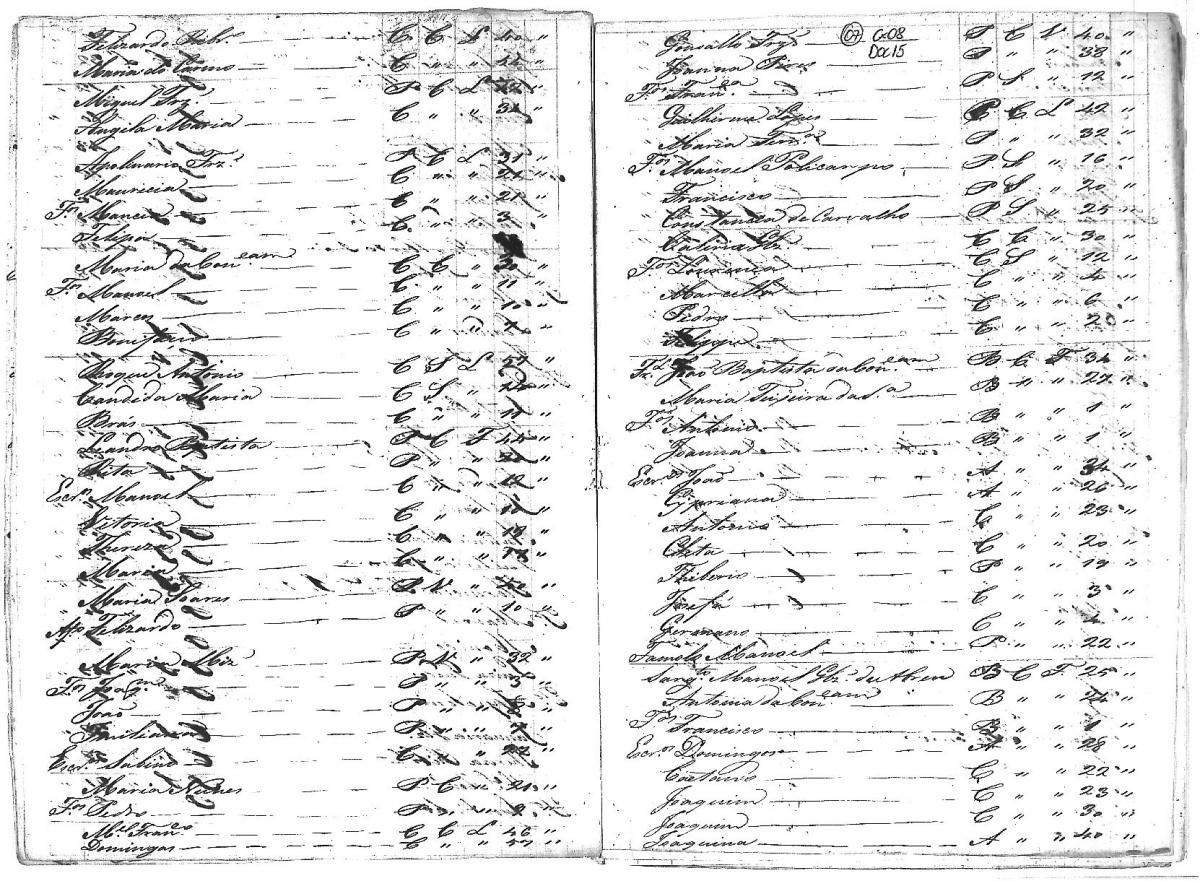 Felizardo Ribr.º C C L 40 "
Maria do Carmo C " "
Miguel Frz. P C L 22 "
Angela Maria C " " 32 "
Apolinario Frz.ª P C L 31 "
Mauricia C " " 21 "
F.ª Mancia C " " 21 "
Felipa C " " 3 "
Maria da Con.cam C C " 30 "
F.os Manoel C " " 11 "
Marcos C " " 10 "
C "
Roque Antonio C S L 57 "
Candida Maria C S "
Brás C " " 11 "
Leandro Baptista P C F 44 "
Rita P " "
Escr.os Manoel C " " 12 "
Vitoria C " " 11 "
Thereza C " " 18 "
Maria C " "
Maria Soares P V " 40 "
Felizardo P " " 10 "
Maria P V " 32 "
F.os Joaq.m P " " 3 "
João P " "
Emiliana P " "
Escr.º Sabino C " " 22 "
Maria Nunes P C " 21 "
F.os Pedro P " " 2 "
M.el Fran.co C C L 46 "
Domingas C " " 57 "
07 G:08
Doc 15
Gonsallo Frz P C L 40 "
Joanna Pires P " " 38 "
F.º Fran.ca P S " 12 "
Guilherme Lopes P C L 42 "
Maria Ferr.ª P " 32 "
F.os Manoel Policarpo P S " 16 "
Francisco P " 20 "
Constancia de Carvalho P S " 25 "
C C " 30 "
F.os Lourença C S " 12 "
Marcella C " " 4 "
Pedro C " " 6 "
Felippe C " " 20 "
João Baptista da Con.cam B C F 34 "
Maria Teixeira da S.ª B " " 27 "
F.os Antonio B " " 1 "
Joanna B " " 1 "
Escr.os João A " " 34 "
Cypriana A " " 26 "
Antonio C " " 23 "
C " " 20 "
P " " 19 "
Josefa C " " 3 "
Germano C " "
Famolo Manoel P " " 22 "
Sarg.to Manoel Glz' de Abreu B C F 25 "
Antonia da Con.cam B " " 24 "
F.os Francisco B " " 1 "
Escr.os Domingos A " " 28 "
Caetano C " " 22 "
Joaquim C " " 23 "
Joaquim C " " 30 "
Joaquina A " " 40 "